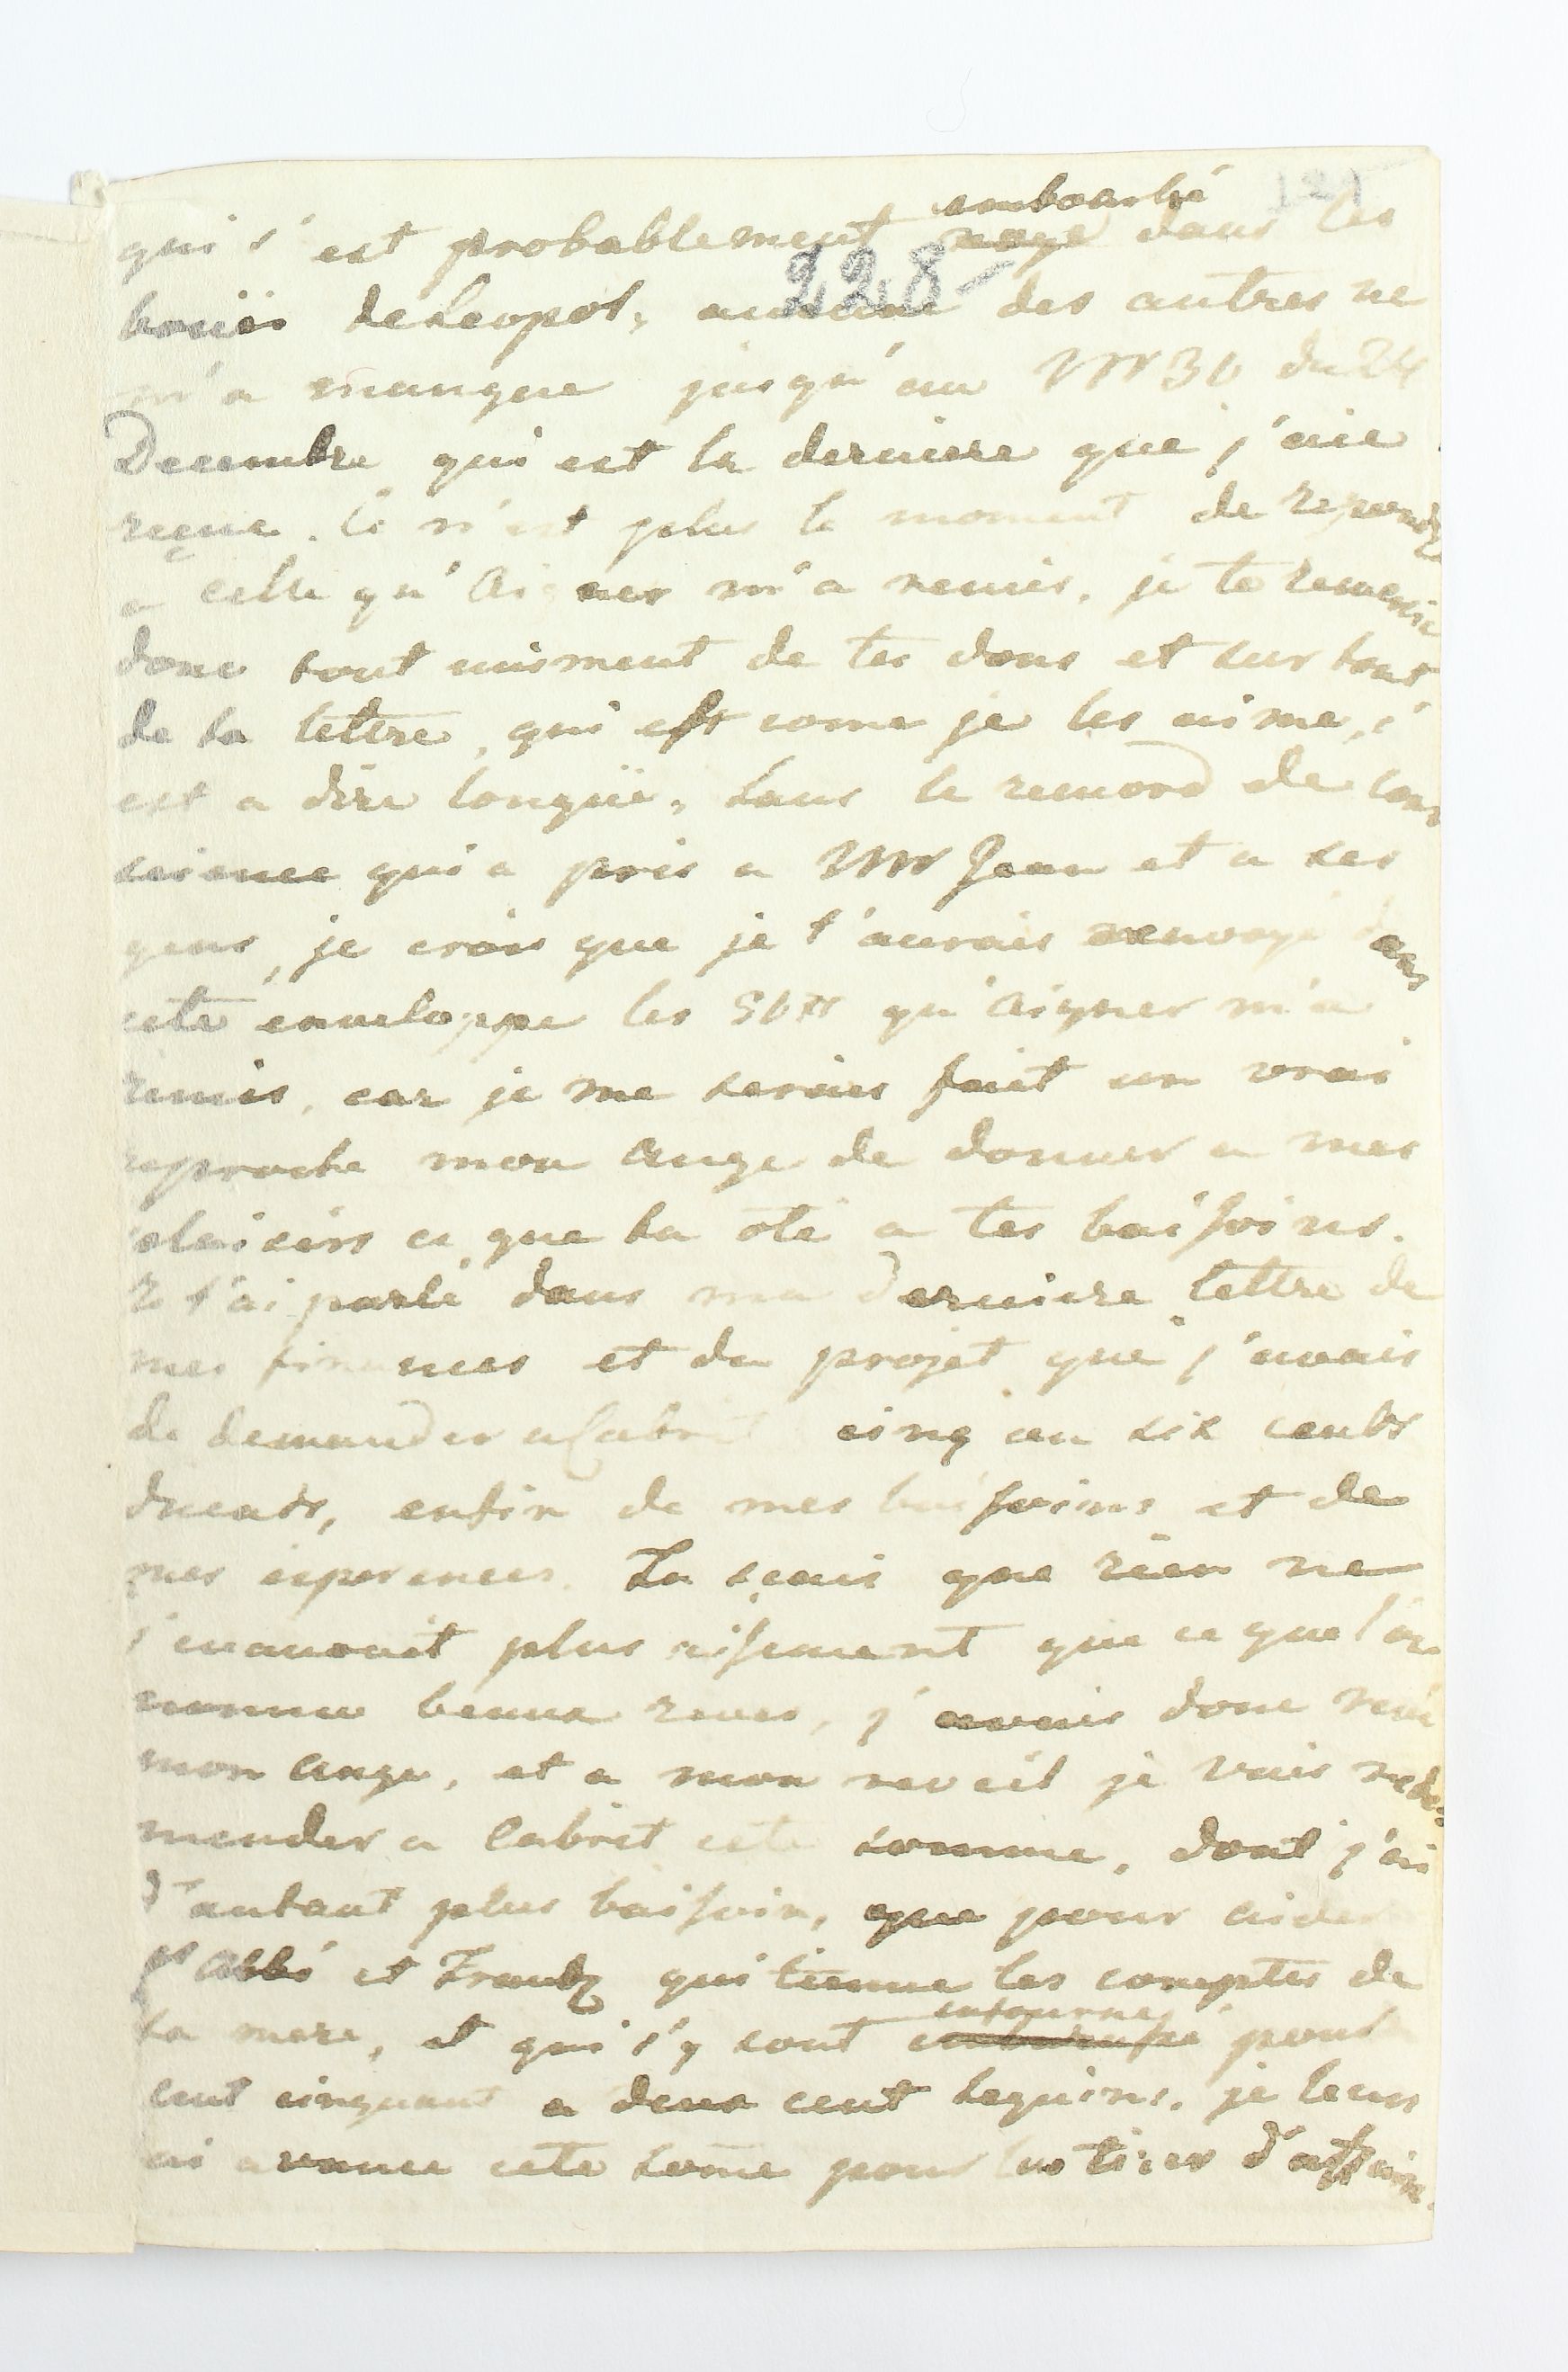 embourbé
qui s'est probablement noye dans les
228
bouës de Leopol, aucune des autres ne
m'a manque jusqu'au N 30 du 24
Decembre qui est la derniere que j'aie
reçue. Ce n'est plus le moment de repondre
a celle qu'Aigner m'a remis, je te remercie
donc tout uniment de tes dons et sur tout
de ta lettre, qui est come je les aime, c'
est a dire longüe, sans le remord de con
science qui a pris a Mr Jean et a ses
gens, je crois que je t'aurais renvoyé dans
cete enveloppe les qu'Aigner m'a
remis, car je me serais fait un vrai
reproche mon Ange de donner a mes
plaisirs ce que ta oté a tes baisoins.
Je t'ai parlé dans ma derniere lettre de
mes finances et du projet que j'avais
de demander a Cabrit cinq au six cents
ducats, enfin de mes baisoins et de
mes esperences. Tu sçais que rien ne
s'evanouit plus aisement que ce que l'on
nomme beaux reves, j'avais donc revé
mon Ange, et a mon reveil je vais rede
mender a Cabrit cete somme, dont j'ai
d'autant plus baisoin, que pour aider
l'Abbé et Frantz qui tienne les comptes de
ta mere, et qui s'y sont enfourne pour
cent cinquant a deux cent sequins, je leurs
ai avance cete some pour les tirer d'affaire.